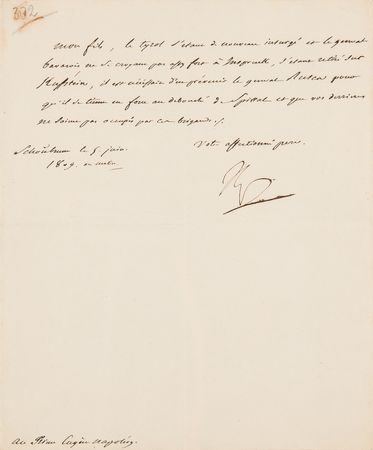 302
Mon fils, le tyrol s'étant de nouveau insurgé et le general
bavarois ne se croyant pas assez fort à Inspruck, s'étant retiré sur
Kufstein, il est nécessaire d'en prévenir le general Rusca pour
qu'il se tienne en force au débouché de Spital et que vos derrieres
ne soient pas occupés par ces brigands.
Schönbrunn le 5 juin
Votre affectionné pere.
1809. au matin
Au Prince Eugène Napoléon.